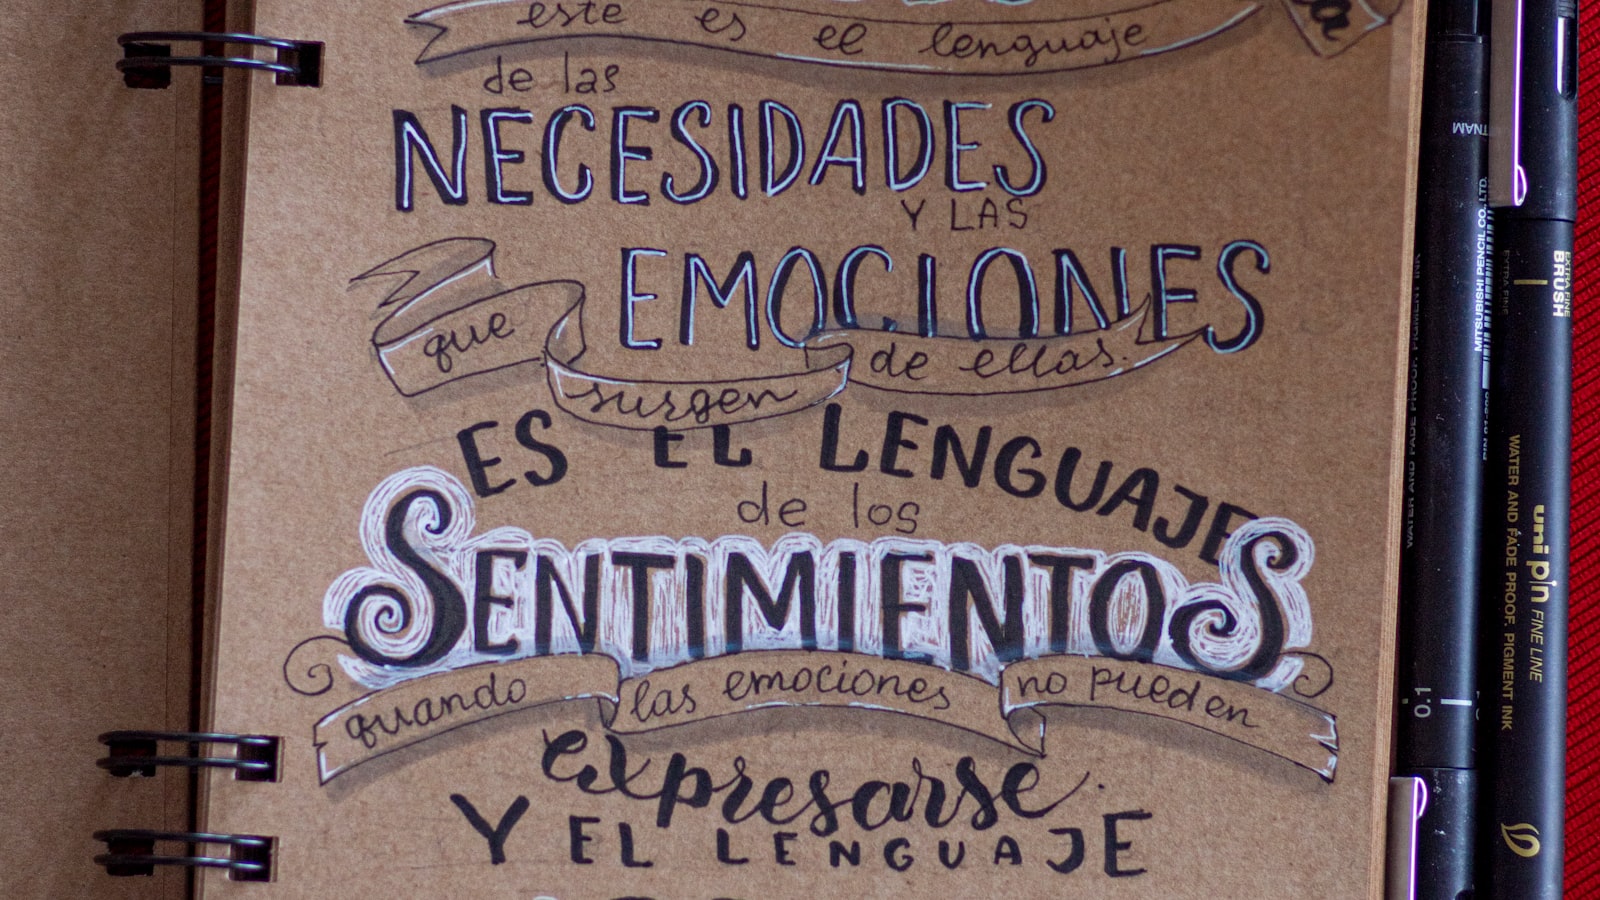 este es el lenguaje
de las
NECESIDADES
Y LAS
EMOCIONES
que surgen de ellas.
ES EL LENGUAJE
de los
SENTIMIENTOS
quando las emociones no pueden
expresarse.
Y EL LENGUAJE
TNAM
MITSUBISHI PENCIL CO., LTD.
0.1
EXTRA FINE
BRUSH
uni pin FINE LINE
WATER AND FADE PROOF, PIGMENT INK